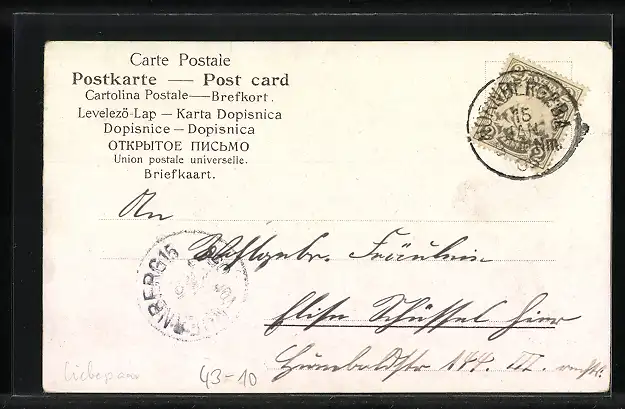 Carte Postale
Postkarte — Post card
Cartolina Postale — Brefkort.
Levelező-Lap — Karta Dopisnica
Dopisnice — Dopisnica
ОТКРЫТОЕ ПИСЬМО
Union postale universelle.
Briefkaart.
NUERNBERG
15
JAN
An
Wohlgebr. Fräulein
Elise Schüssel hier
Humboldtstr 144. III. rechts.
Liebespaar
43-10